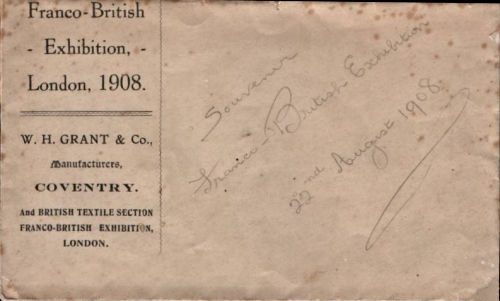 Franco-British
- Exhibition, -
London, 1908.
W. H. GRANT & Co.,
Manufacturers,
COVENTRY.
And BRITISH TEXTILE SECTION
FRANCO-BRITISH EXHIBITION,
LONDON.
Souvenir
Franco-British Exhibition
22nd August 1908